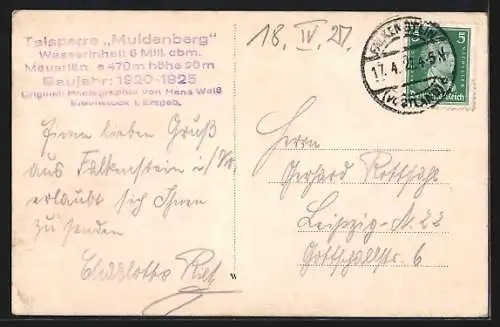 Talsperre „Muldenberg"
Wasserinhalt 6 Mill. cbm.
Mauerlän. e 470 m höhe 20 m
Baujahr: 1920-1925
Original-Photographie von Hans Weiß
Eibenstock i. Erzgeb.
18. IV. 27.
FALKENSTEIN
17. 4. 27. 4-5 N
(VOGTLAND)
5
Deutsches Reich
Einen lieben Gruß
aus Falkenstein i/V.
erlaubt sich Ihnen
zu senden
Charlotte
Herrn
Gerhard
Leipzig-N. 22
Gottschallstr. 6